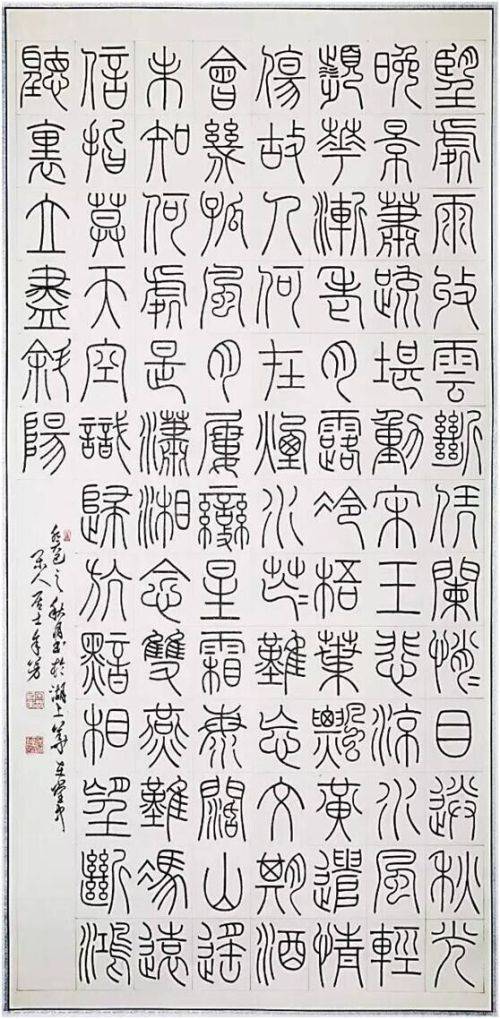 望處雨收雲斷凭闌悄〻目送秋光
晚景蕭疏堪動宋玉悲涼水風輕
蘋華漸老月露冷梧葉飄黃遣情
傷故人何在煙水茫〻難忘文期酒
會幾孤風月屢變星霜海闊山遙
未知何處是瀟湘念雙燕難馮遠
信指莫天空識歸航黯相望斷鴻
聽裏立盡斜陽
之秋月書於湖上
居士